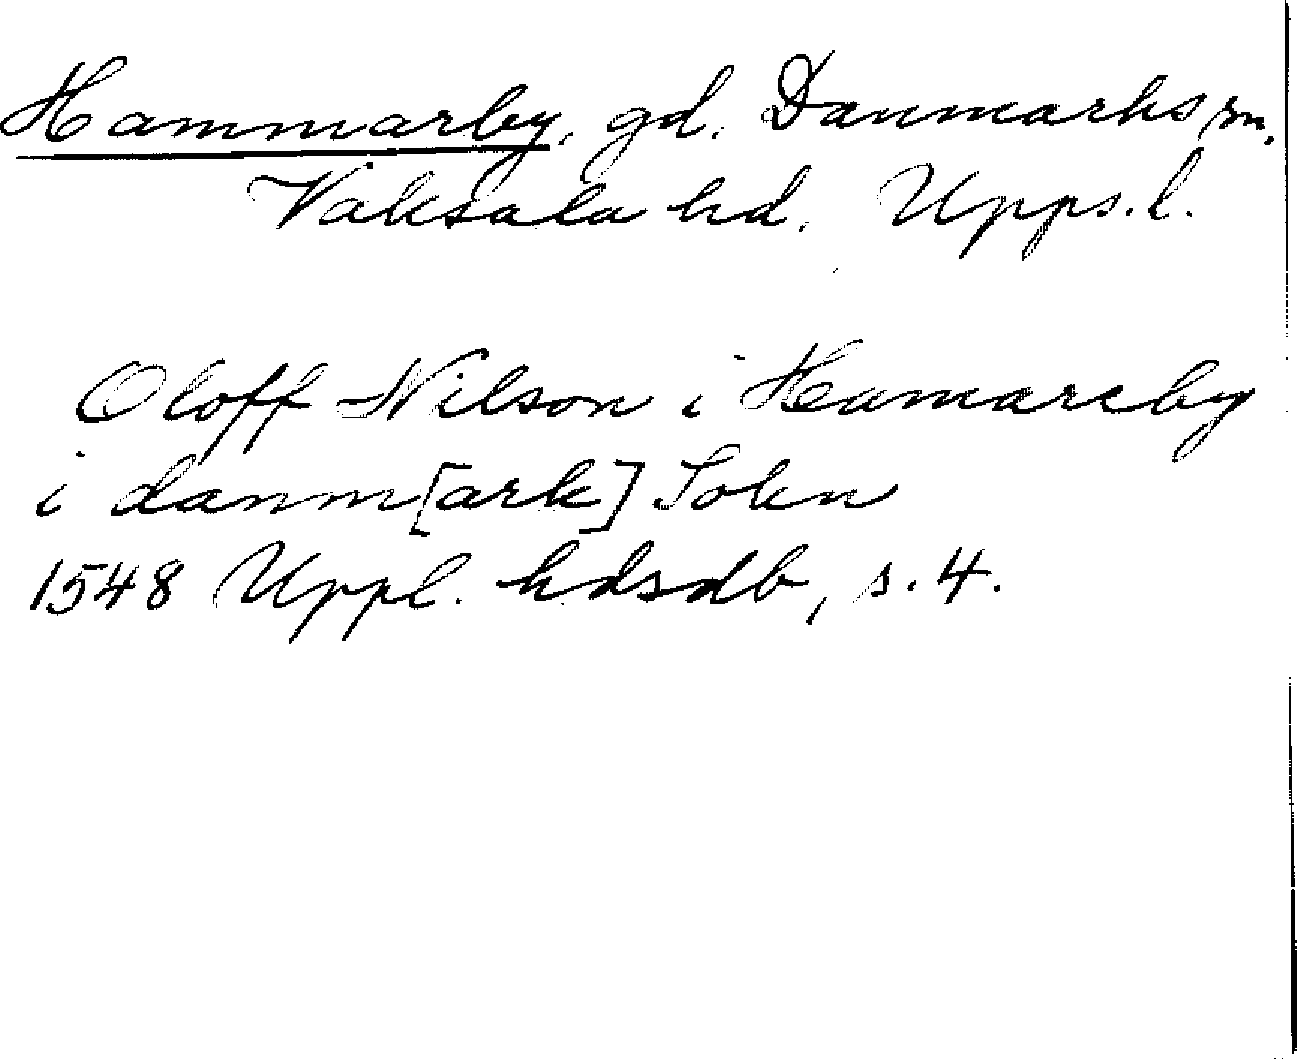 Hammarby, gd. Danmarks sn.
Vaksala hd. Upps.l.
Oloff Nilson i Hamareby
i danm[ark] Sokn
1548 Uppl. hdsdb, s. 4.